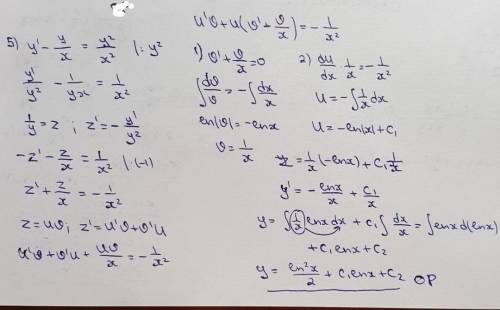 5) y' - y/x = y²/x² |: y²
y'/y² - 1/yx = 1/x²
1/y = z ; z' = -y'/y²
-z' - z/x = 1/x² |·(-1)
z' + z/x = -1/x²
z = uϑ ; z' = u'ϑ + ϑ'u
u'ϑ + ϑ'u + uϑ/x = -1/x²
u'ϑ + u(ϑ' + ϑ/x) = -1/x²
1) ϑ' + ϑ/x = 0
∫dϑ/ϑ = -∫dx/x
ln|ϑ| = -lnx
ϑ = 1/x
2) du/dx 1/x = -1/x²
u = -∫1/x dx
u = -ln|x| + C₁
z = 1/x(-lnx) + C₁ 1/x
y' = -lnx/x + C₁/x
y = ∫(1/x) lnx dx + C₁∫dx/x = ∫lnx d(lnx)
+ C₁lnx + C₂
y = ln²x/2 + C₁lnx + C₂ OP